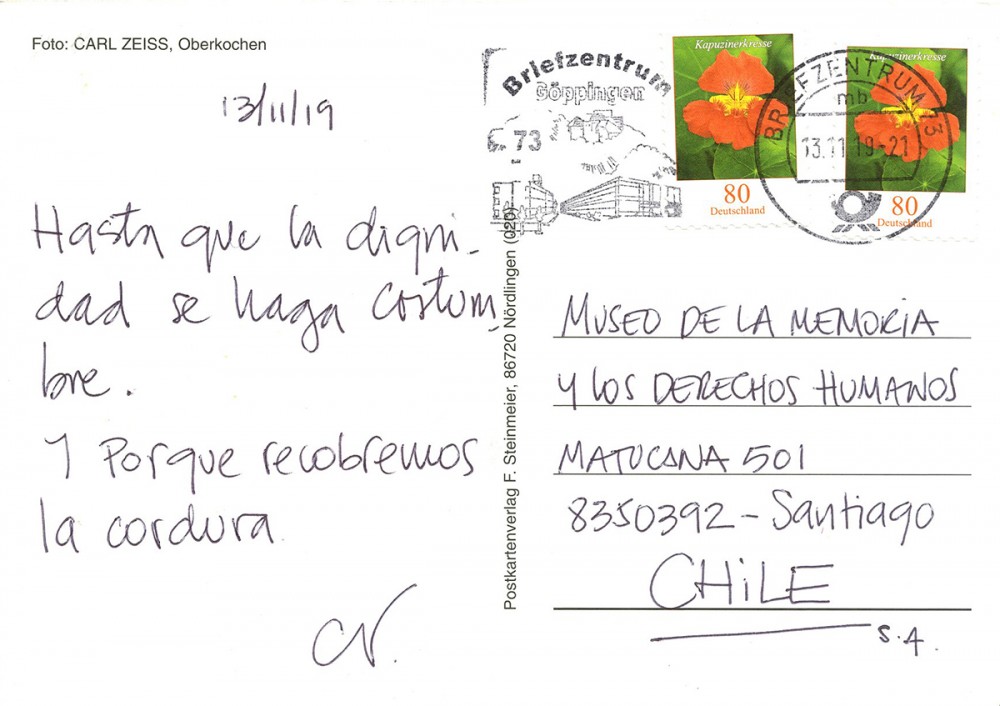 Foto: CARL ZEISS, Oberkochen
13/11/19
Hasta que la digni-
dad se haga costum-
bre.
Y Porque recobremos
la cordura
CV.
Postkartenverlag F. Steinmeier, 86720 Nördlingen (020)
Briefzentrum
Göppingen
73
Kapuzinerkresse
80
Deutschland
Kapuzinerkresse
80
Deutschland
BRIEFZENTRUM 73
mb
13.11.19-21
MUSEO DE LA MEMORIA
Y LOS DERECHOS HUMANOS
MATUCANA 501
8350392 - Santiago
CHILE
S.A.